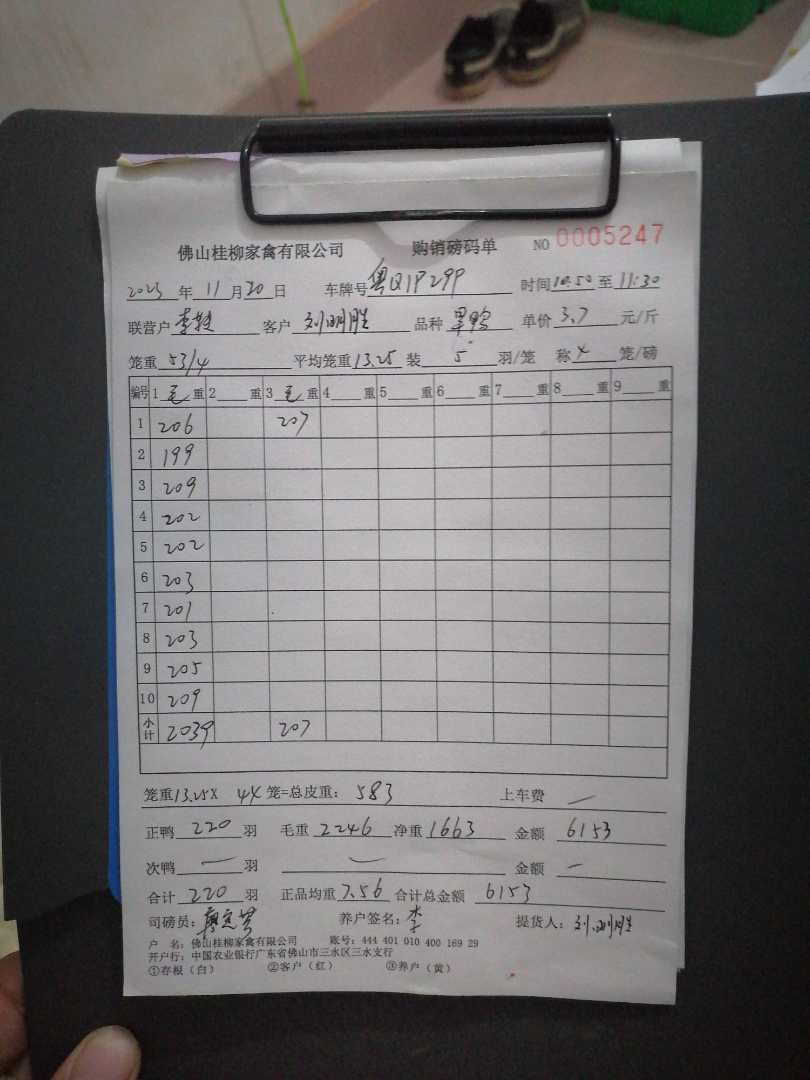 佛山桂柳家禽有限公司 购销磅码单 NO 0005247
2023 年 11 月 20 日 车牌号 粤Q1P29P 时间 10:50 至 11:30
联营户 李 客户 刘明胜 品种 单价 3.7 元/斤
笼重 53/4 平均笼重 13.25 装 5 羽/笼 称 4 笼/磅
编号 1 毛 重 2 重 3 毛 重 4 重 5 重 6 重 7 重 8 重 9 重
1 206 207
2 199
3 209
4 202
5 202
6 203
7 201
8 203
9 205
10 209
小计 2039 207
笼重 13.25X 44 笼=总皮重: 583 上车费 —
正鸭 220 羽 毛重 2246 净重 1663 金额 6153
次鸭 — 羽 — 金额 —
合计 220 羽 正品均重 7.56 合计总金额 6153
司磅员: 养户签名: 李 提货人: 刘明胜
户 名: 佛山桂柳家禽有限公司 账号: 444 401 010 400 169 29
开户行: 中国农业银行广东省佛山市三水区三水支行
①存根(白) ②客户(红) ③养户(黄)